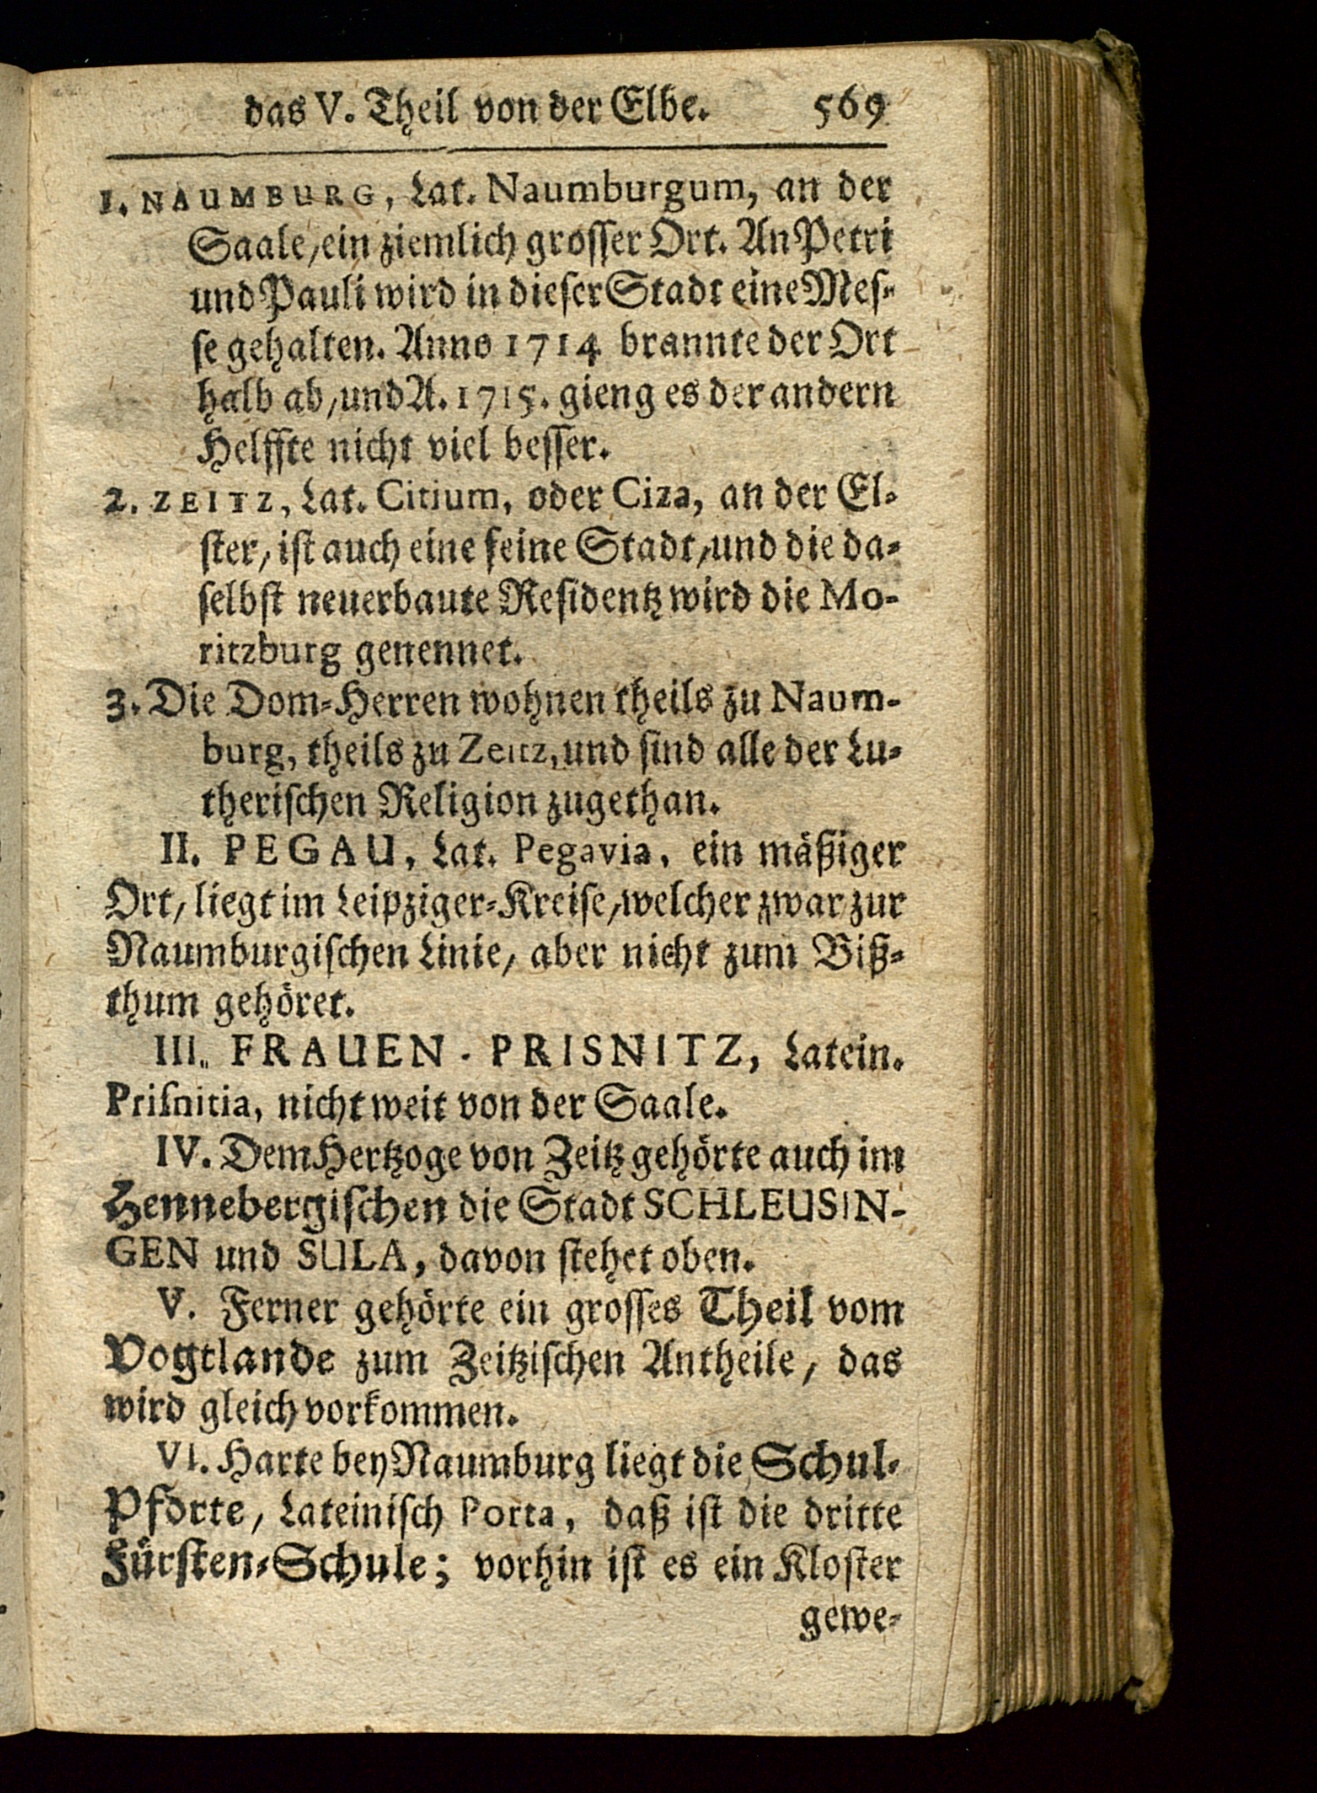 das V. Theil von der Elbe. 569
1. NAUMBURG, Lat. Naumburgum, an der
Saale, ein ziemlich grosser Ort. An Petri
und Pauli wird in dieser Stadt eine Mes-
se gehalten. Anno 1714 brannte der Ort
halb ab, und A. 1715. gieng es der andern
Helffte nicht viel besser.
2. ZEITZ, Lat. Citium, oder Ciza, an der El-
ster, ist auch eine feine Stadt, und die da-
selbst neuerbaute Residentz wird die Mo-
ritzburg genennet.
3. Die Dom-Herren wohnen theils zu Naum-
burg, theils zu Zeitz, und sind alle der Lu-
therischen Religion zugethan.
II. PEGAU, Lat. Pegavia, ein mäßiger
Ort, liegt im Leipziger-Kreise, welcher zwar zur
Naumburgischen Linie, aber nicht zum Biß-
thum gehöret.
III. FRAUEN-PRISNITZ, Latein.
Prisnitia, nicht weit von der Saale.
IV. Dem Hertzoge von Zeitz gehörte auch im
Hennebergischen die Stadt SCHLEUSIN-
GEN und SULA, davon stehet oben.
V. Ferner gehörte ein grosses Theil vom
Vogtlande zum Zeitzischen Antheile, das
wird gleich vorkommen.
VI. Harte bey Naumburg liegt die Schul-
Pforte, Lateinisch Porta, daß ist die dritte
Fürsten-Schule; vorhin ist es ein Kloster
gewe-